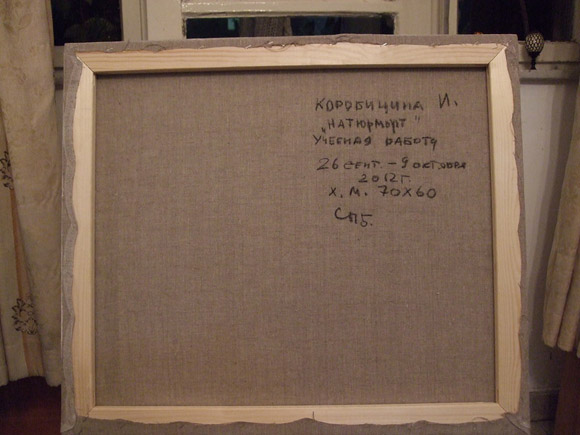 КОРОБИЦИНА И.
„НАТЮРМОРТ"
УЧЕБНАЯ РАБОТА
26 СЕНТ. – 9 ОКТЯБРЯ
2012 Г.
Х. М. 70Х60
СПБ.